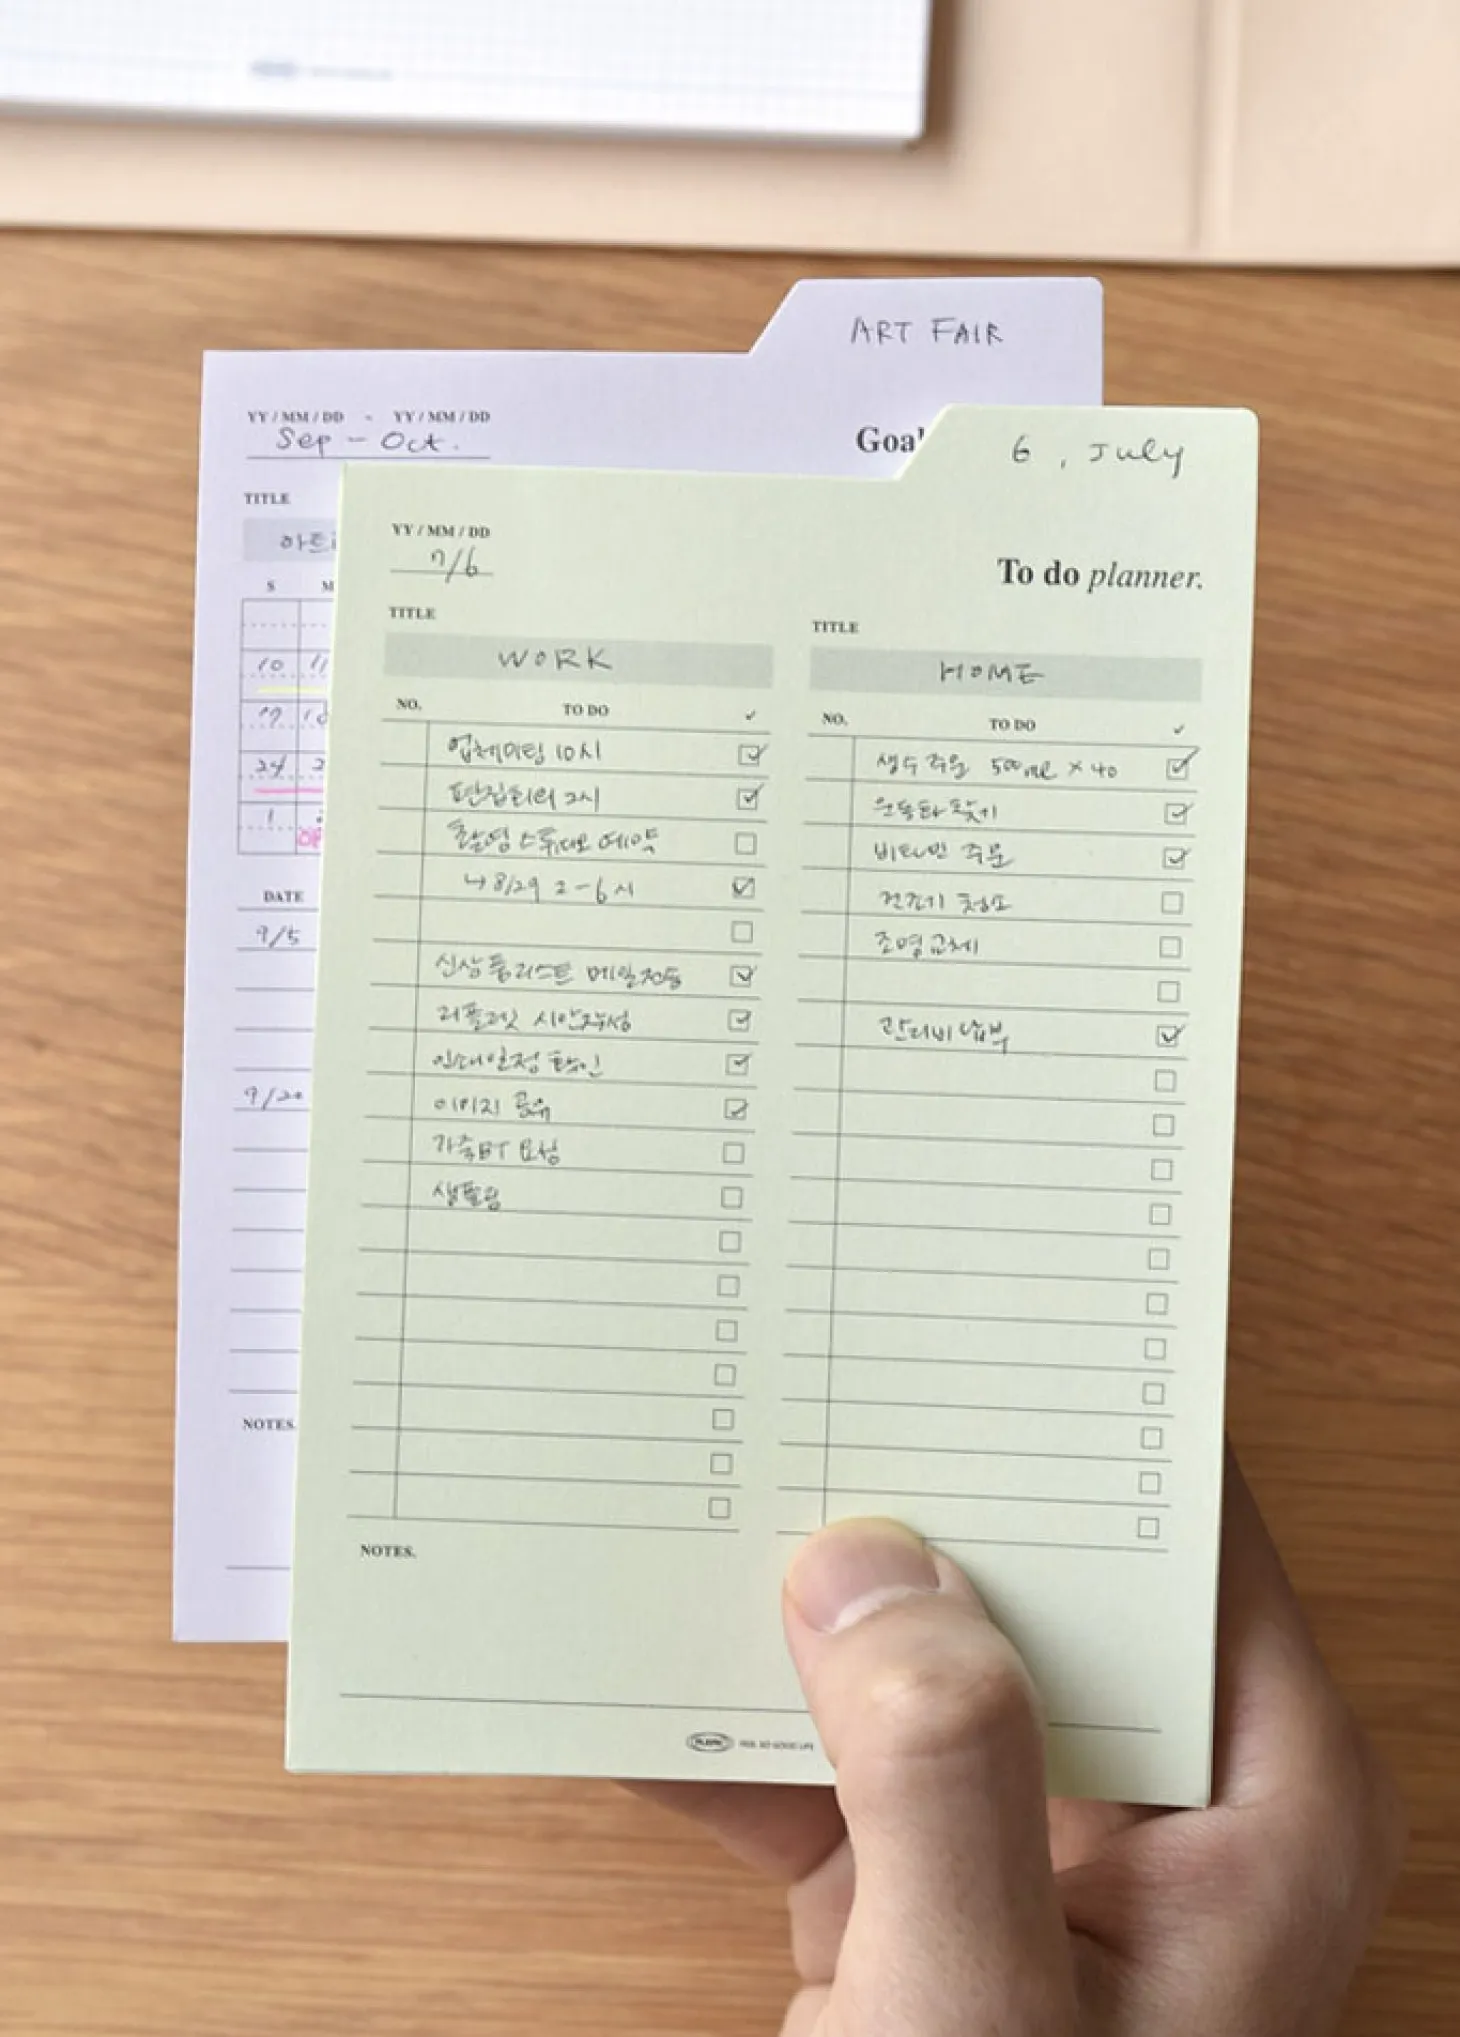 ART FAIR
YY / MM / DD - YY / MM / DD
Sep - Oct.
Goal
TITLE
아트
S M
10 11
17 18
24 2
1
DATE
9/5
9/20
NOTES.
6, July
YY / MM / DD
7/6
To do planner.
TITLE
WORK
NO. TO DO ✓
업체미팅 10시
편집회의 2시
촬영 스튜디오 예약
↳ 8/29 2-6시
신상품리스트 메일전송
리플렛 시안작성
인쇄일정 확인
이미지 공유
가죽BT 요청
샘플링
NOTES.
TITLE
HOME
NO. TO DO ✓
생수 주문 500ml × 40
운동화 찾기
비타민 주문
건조기 청소
조명교체
관리비 납부
FEEL SO GOOD LIFE